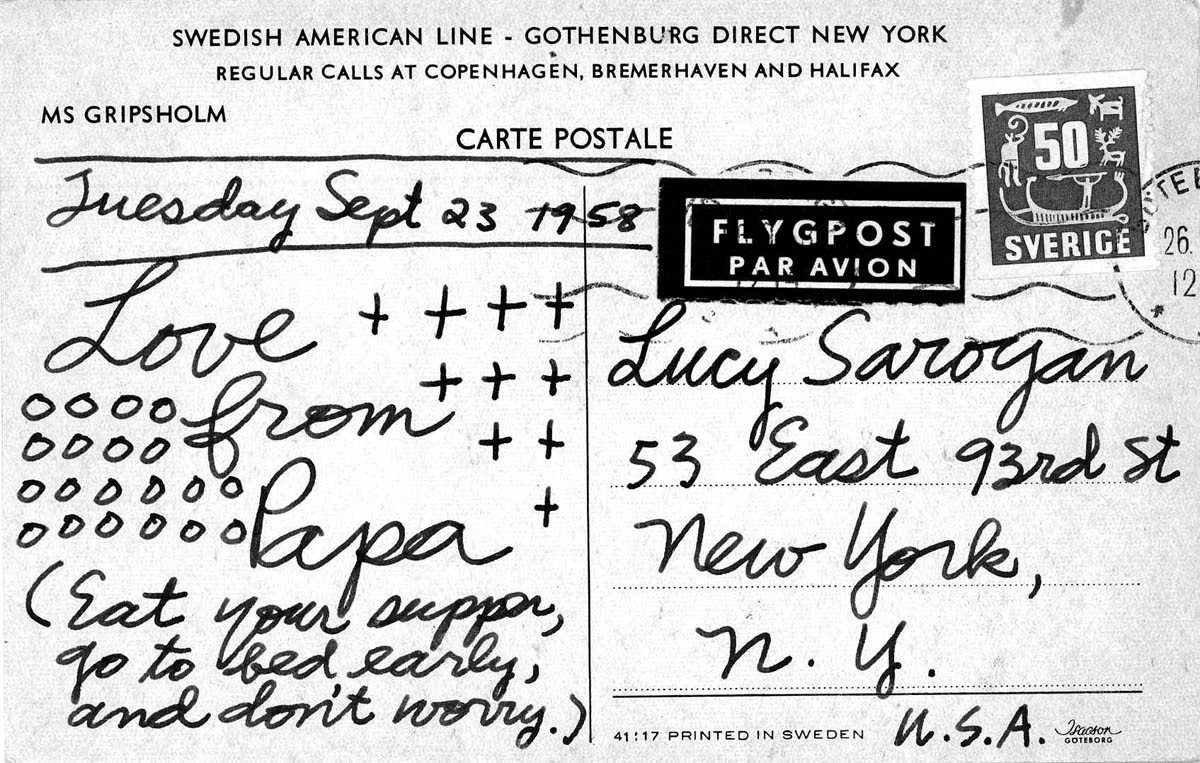 SWEDISH AMERICAN LINE - GOTHENBURG DIRECT NEW YORK
REGULAR CALLS AT COPENHAGEN, BREMERHAVEN AND HALIFAX
MS GRIPSHOLM
CARTE POSTALE
Tuesday Sept 23 1958
Love + + + +
+ + +
o o o o from
o o o o + +
o o o o o o
o o o o o o Papa +
(Eat your supper,
go to bed early,
and don't worry.)
FLYGPOST
PAR AVION
50
SVERIGE
26.
12
Lucy Saroyan
53 East 93rd St
New York,
N. Y.
U.S.A.
41:17 PRINTED IN SWEDEN
GÖTEBORG